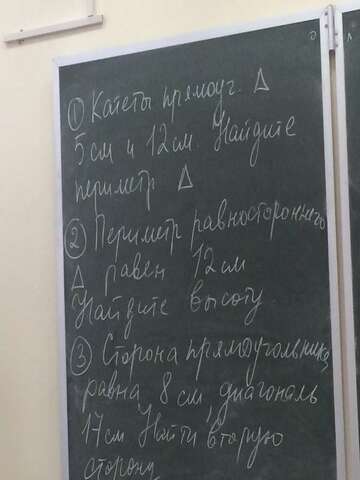 ① Катеты прямоуг. Δ
5 см и 12 см. Найдите
периметр Δ
② Периметр равностороннего
Δ равен 12 см
Найдите высоту.
③ Сторона прямоугольника
равна 8 см, диагональ
17 см Найти вторую
сторону